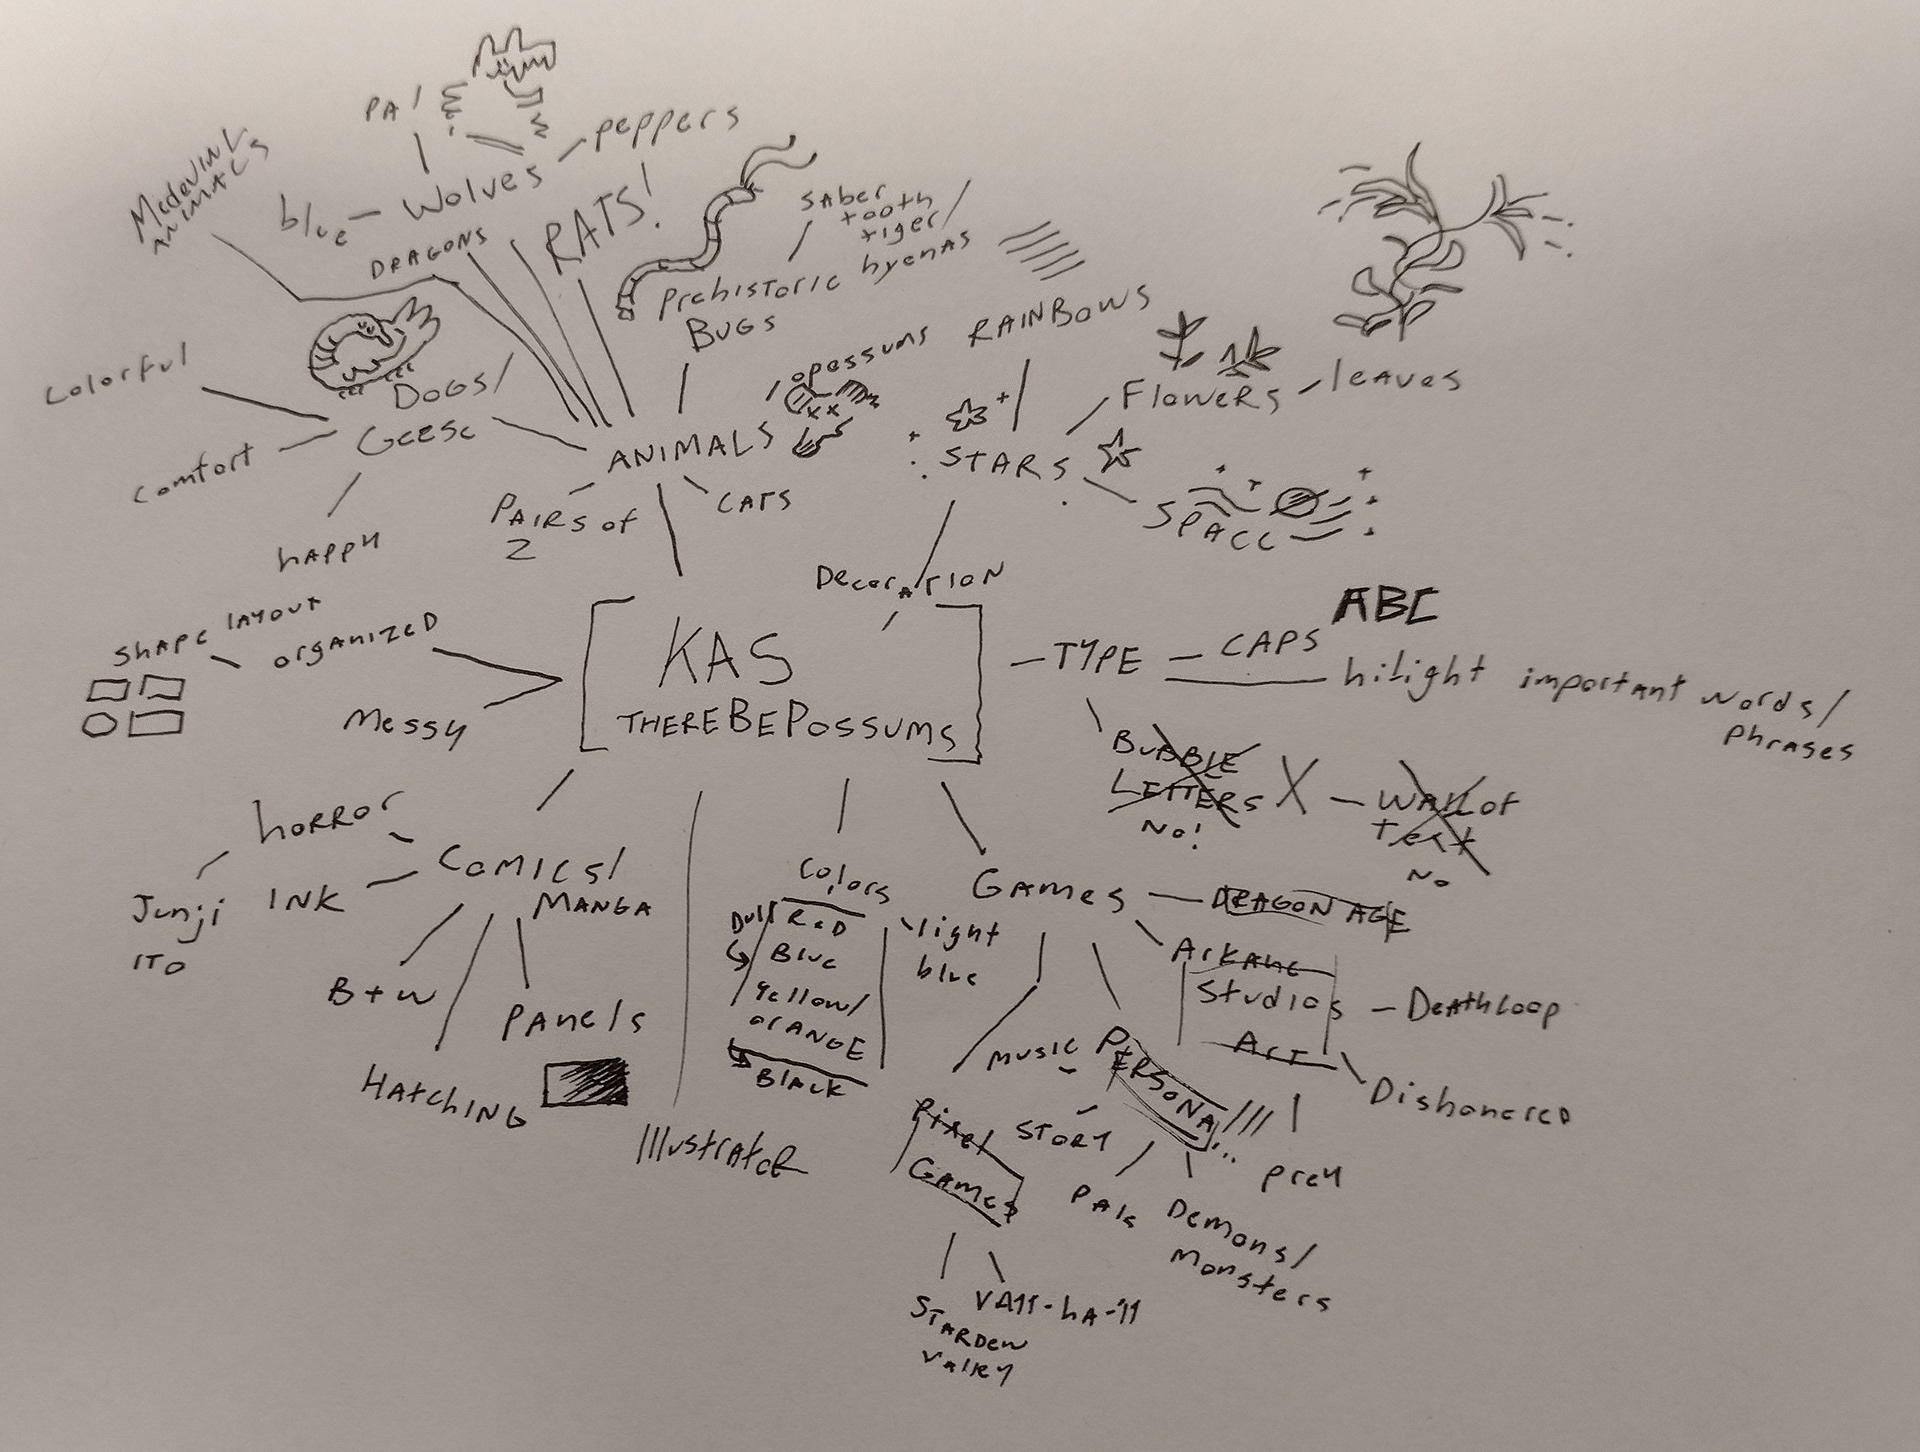 PAl
peppers
Medevinl
ANIMALS
blue
Wolves
RATS!
DRAGONS
SABer
tooth
tiger/
hyenas
Prehistoric
BUGS
opossums
RAINBOWS
Flowers
leaves
Colorful
DOGS/
Geese
ANIMALS
STARS
comfort
PAIRS of
2
CATS
SPACE
happy
Decoration
shape layout
organized
Messy
KAS
THEREBEPOSSUMS
TYPE
CAPS
ABC
hilight important words/
phrases
BUBBLE
LETTERS
No!
X
WAll of
Text
No
horror
Junji
ITO
INK
COMICS/
MANGA
B+W
PANels
HAtchING
Illustrator
Colors
Dull
ReD
Blue
Yellow/
orANGE
Black
light
blue
GAMES
DRAGON AGE
Arkane
Studios
Art
Deathloop
Dishonered
prey
music
PERSONA
STORY
PAls
Demons/
Monsters
Pixel
Games
STARDew
Valley
VA11-hA-11